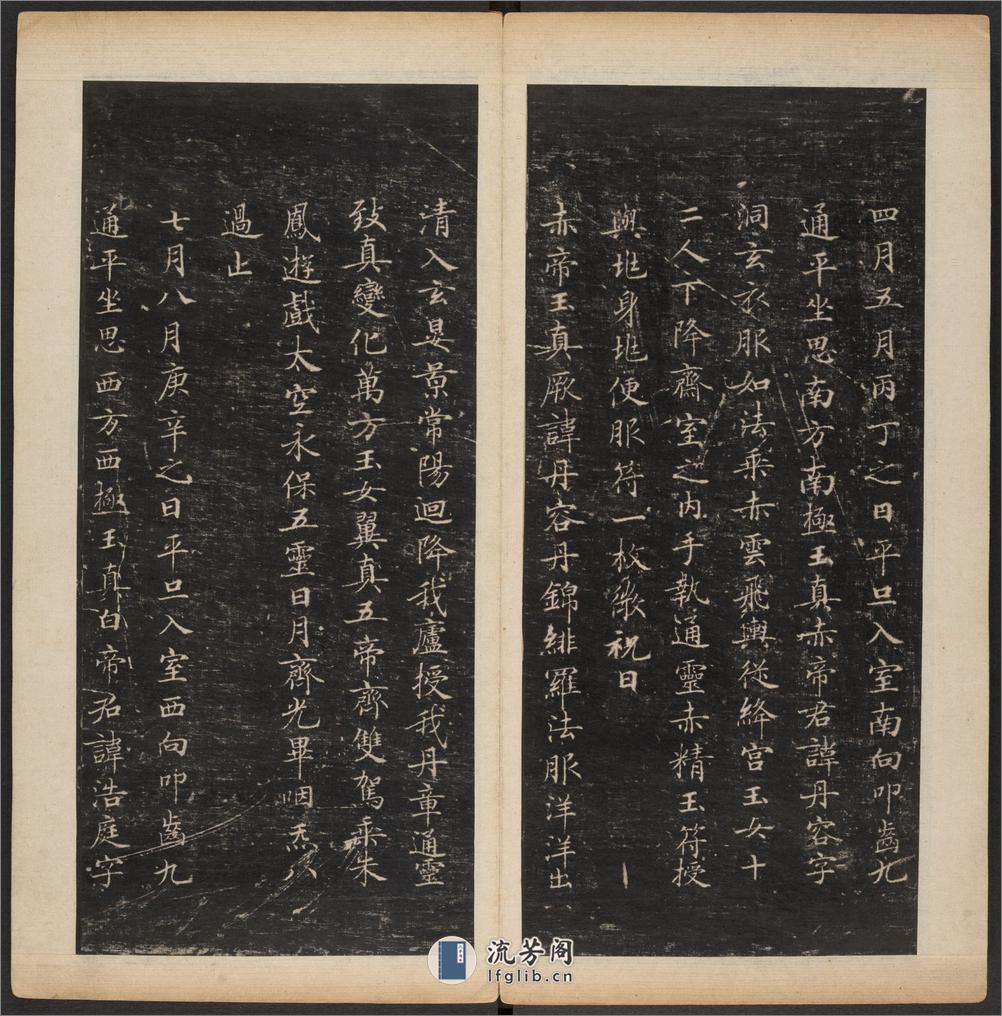 四月五月丙丁之日平旦入室南向叩齒九
通平坐思南方南極玉真赤帝君諱丹容字
洞玄衣服如法乘赤雲飛輿從絳宮玉女十
二人下降齋室之內手執通靈赤精玉符授
與地身地便服符一枚微祝曰
赤帝玉真厥諱丹容丹錦緋羅法服洋洋出
清入玄晏景常陽迴降我廬授我丹章通靈
致真變化萬方玉女翼真五帝齊雙駕乘朱
鳳遊戲太空永保五靈日月齊光畢咽炁八
過止
七月八月庚辛之日平旦入室西向叩齒九
通平坐思西方西極玉真白帝君諱浩庭字
流芳阁
lfglib.cn